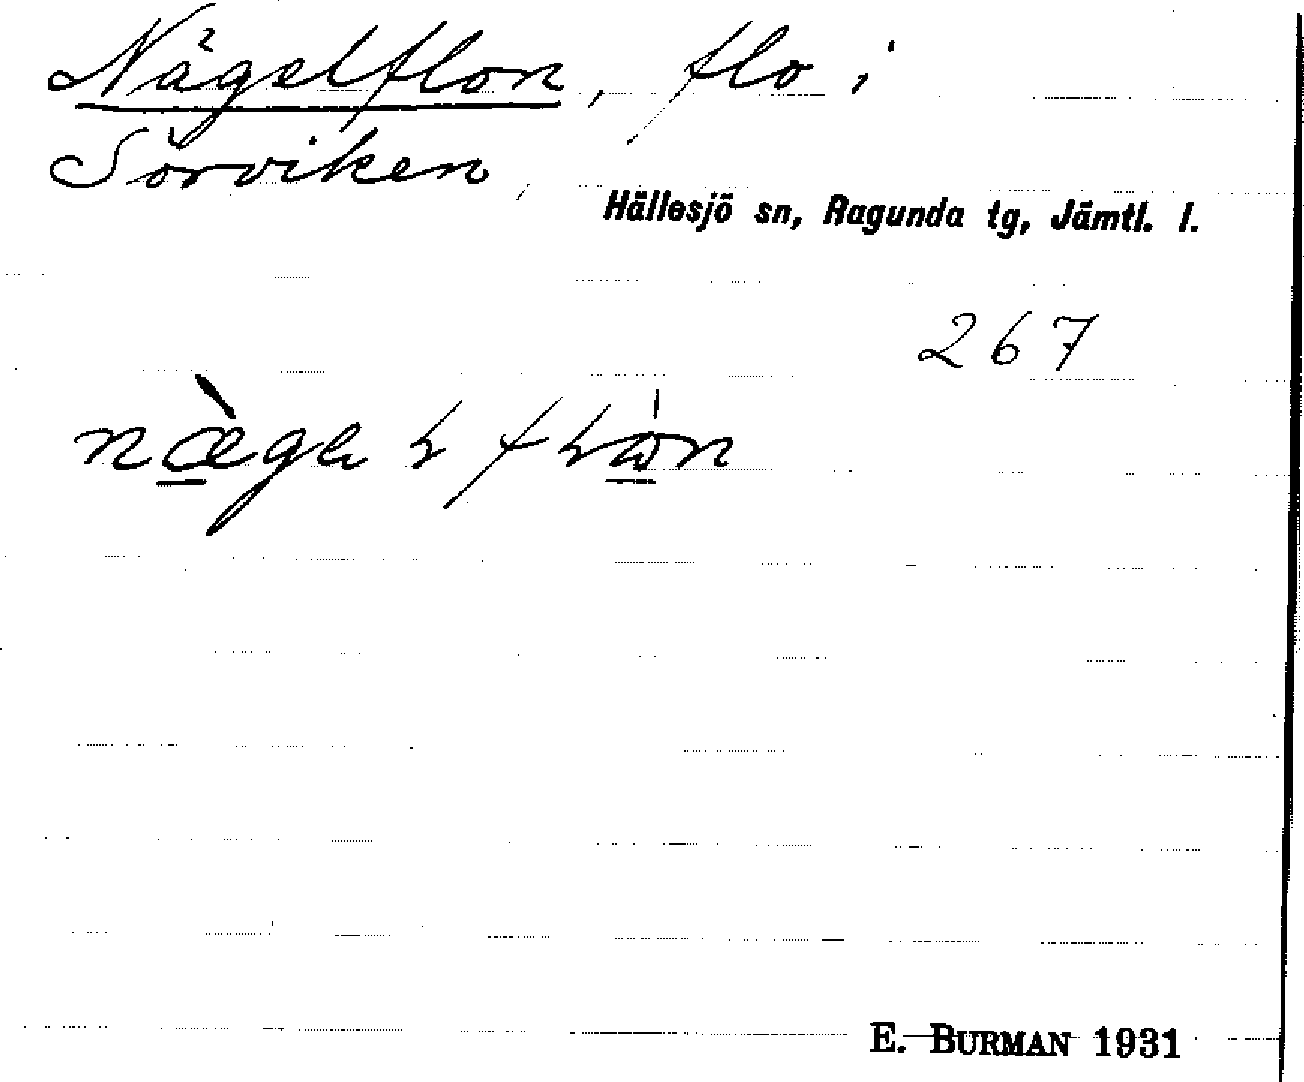 Nägelflon, flo i
Sörviken,
Hällesjö sn, Ragunda tg, Jämtl. l.
267
E. BURMAN 1931